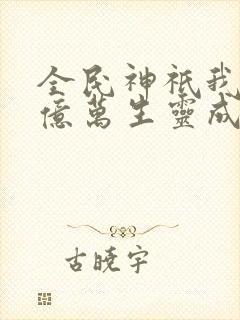 全民神祇我
億萬生靈成
古曉宇